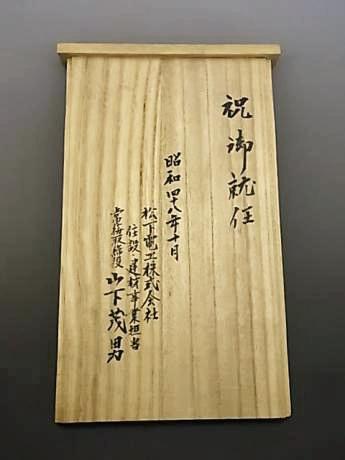 祝御就任
昭和四十八年十月
松下電工株式会社
住設・建材事業担当
常務取締役 山下茂男